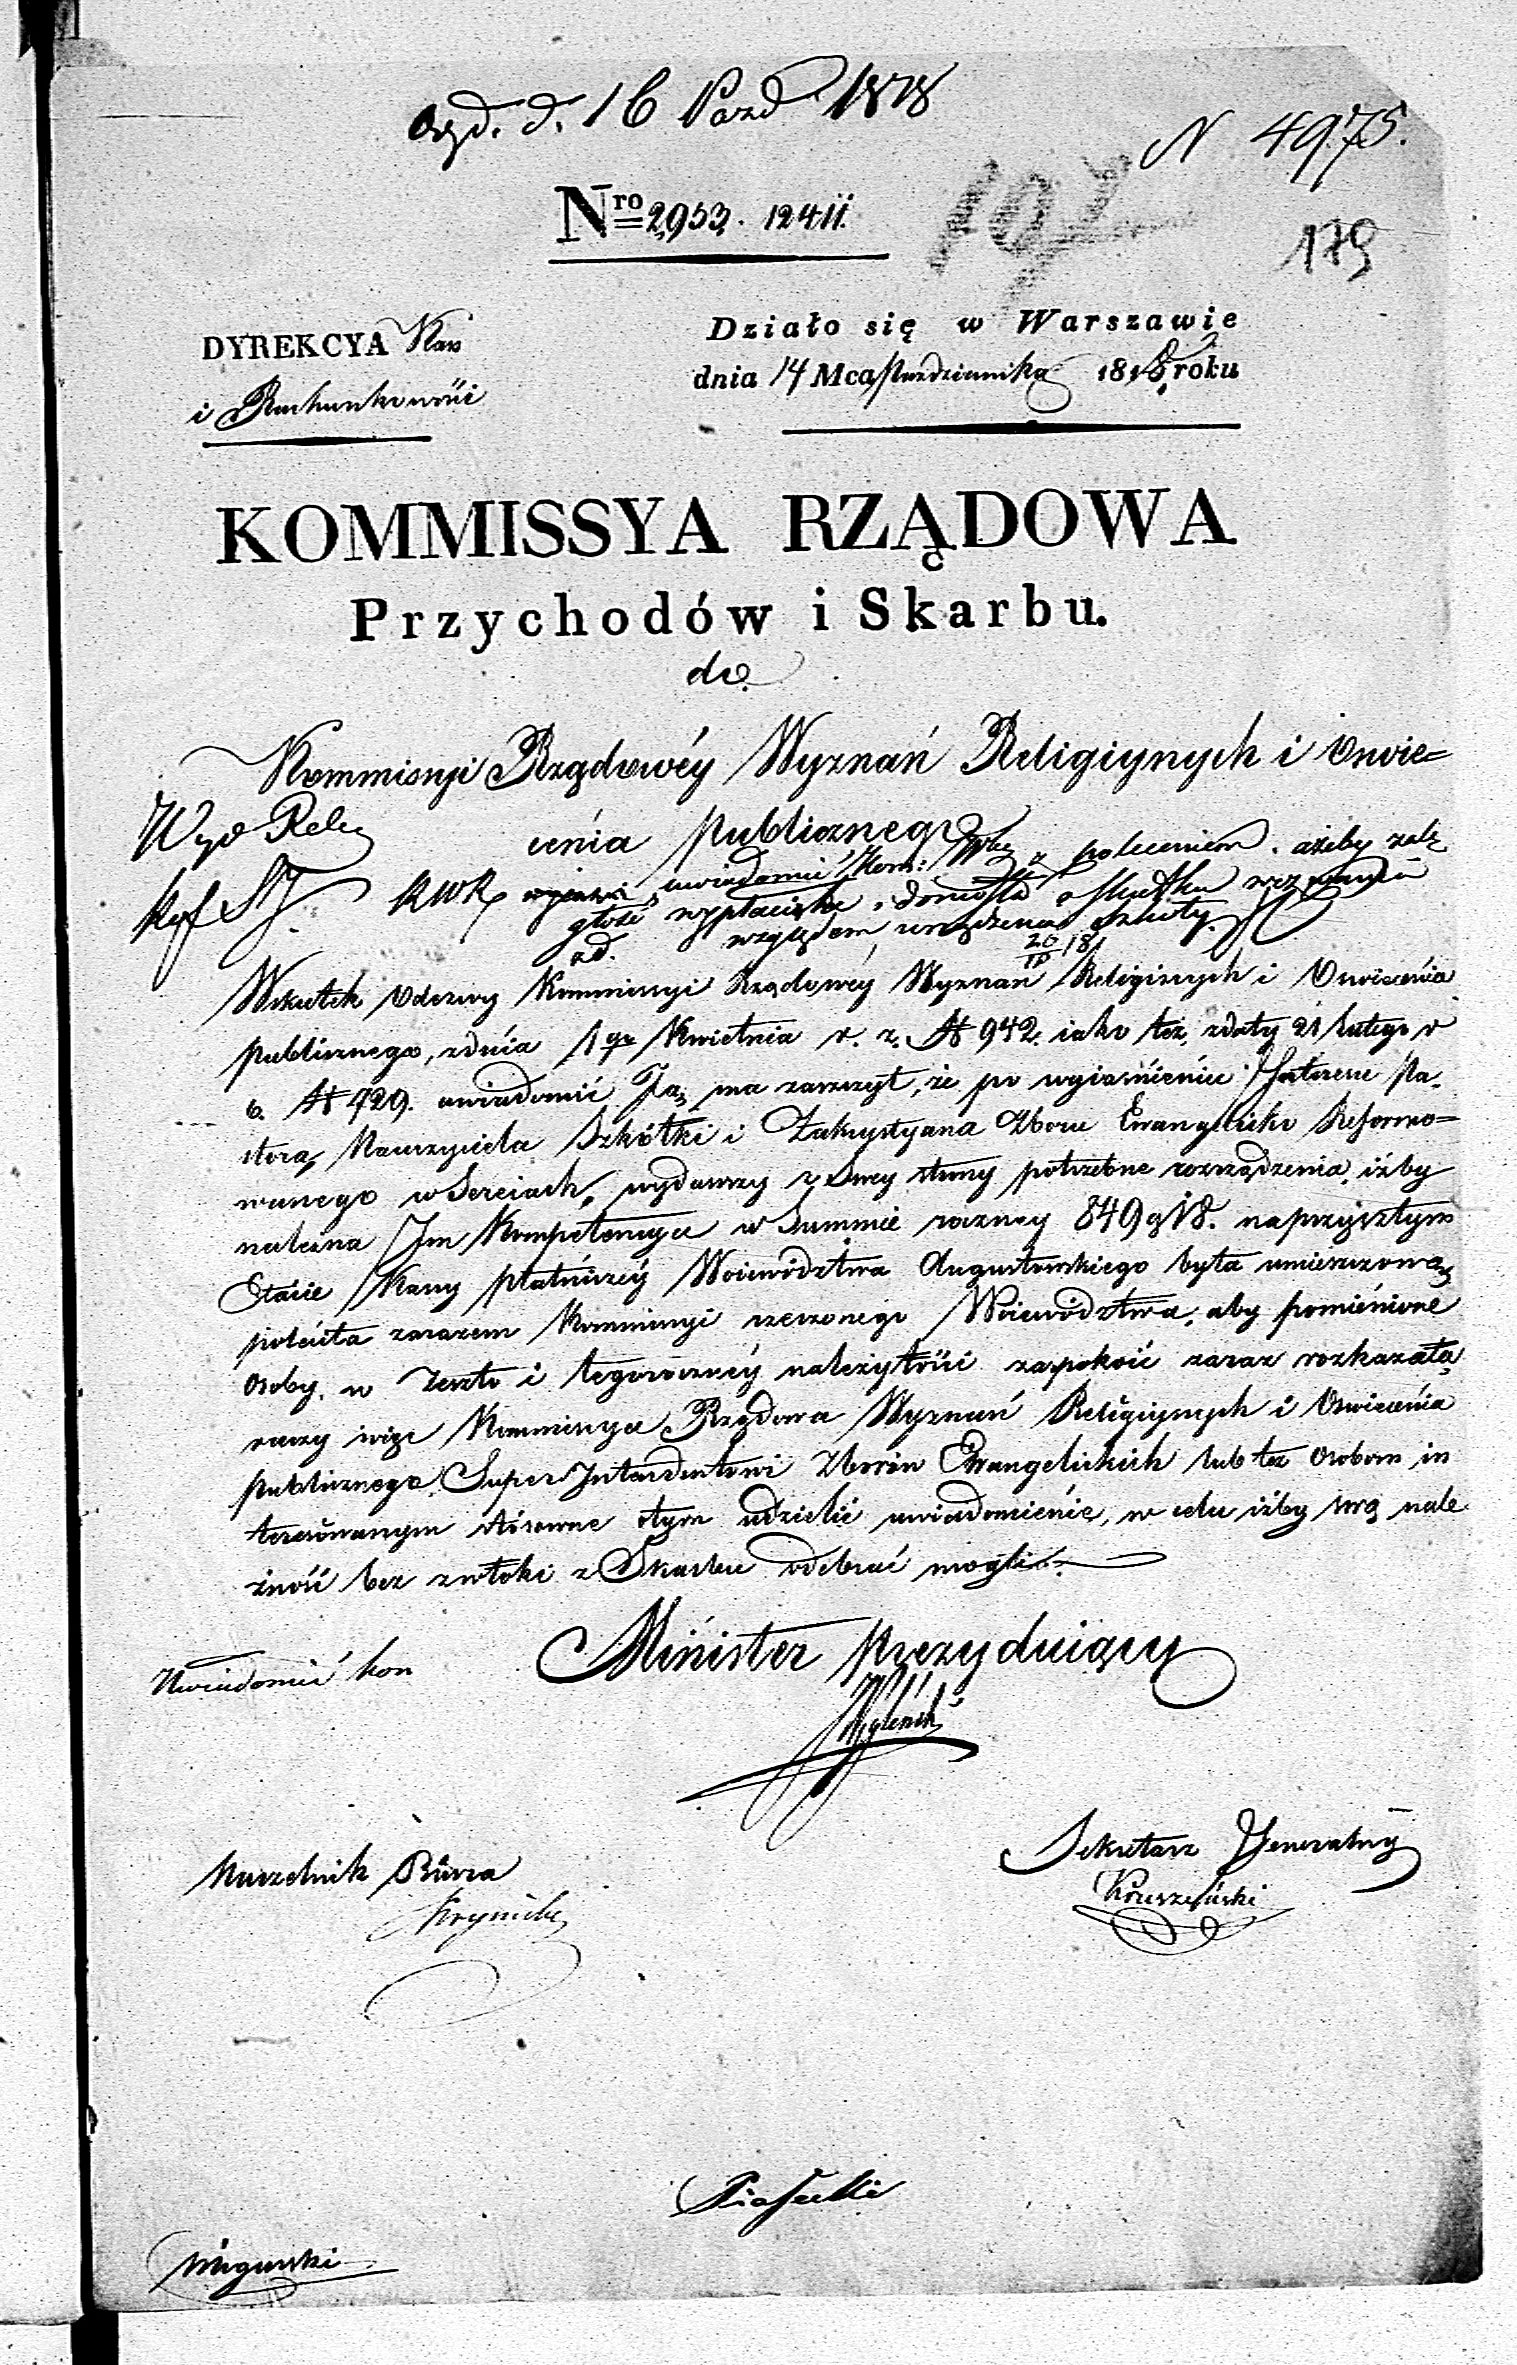 d. 16 Pazd 1818
N 4975.
Nro 2953. 12411.
179
DYREKCYA Kass
i Rachunkowości
Działo się w Warszawie
dnia 14 Mca Pazdziernika 1818 roku
KOMMISSYA RZĄDOWA
Przychodów i Skarbu.
do
Kommissyi Rządowéy Wyznań Religiynych i Oswie=
cenia publicznego
Wyd Relig
KWR uwiadomić Kom: z poleceniem, ażeby zale
głość wypłaciła i doniosła o skutku
względem urządzenia szkoły.
Wskutek Odezwy Kommissyi Rządowéy Wyznań Religiinych i Oswiecenia
publicznego, zdnia 1go Kwietnia r. z. N 942. iako też zdaty 21 lutego r
b. N 729. uwiadomić Ją ma zaszczyt, że po wyiaśnieniu Interesu Pa-
stora, Nauczyciela Szkółki i Zakrystyana Zboru Ewangelicko Reformo=
wanego w Sereiach, wydawszy z Swey strony potrzebne rozrządzenia, iżby
należna Im Kompetencya w Summie roczney 849 g 18. naprzyszłym
Etacie Kassy płatniczéy Woiewództwa Augustowskiego była umieszczoną,
poleciła zarazem Kommissyi rzeczonego Woiewództwa, aby pomienione
Osoby, w Zeszło i tegoroczney należytości zaspokoić zaraz rozkazała
raczy więc Kommissya Rządowa Wyznań Religiynych i Oswiecenia
publicznego Super Intendentowi Zborów Ewangelickich lub też Osobom in
teressowanym stósowne otym udzielić uwiadomienie, w celu iżby swą nale
żność bez zwłoki z Skarbu odebrać mogli.
Uwiadomić kom
Minister Prezyduiący
Węgleński
Naczelnik Biura
Sekretarz Jeneralny
Kruszyński
Piasecki
Migurski